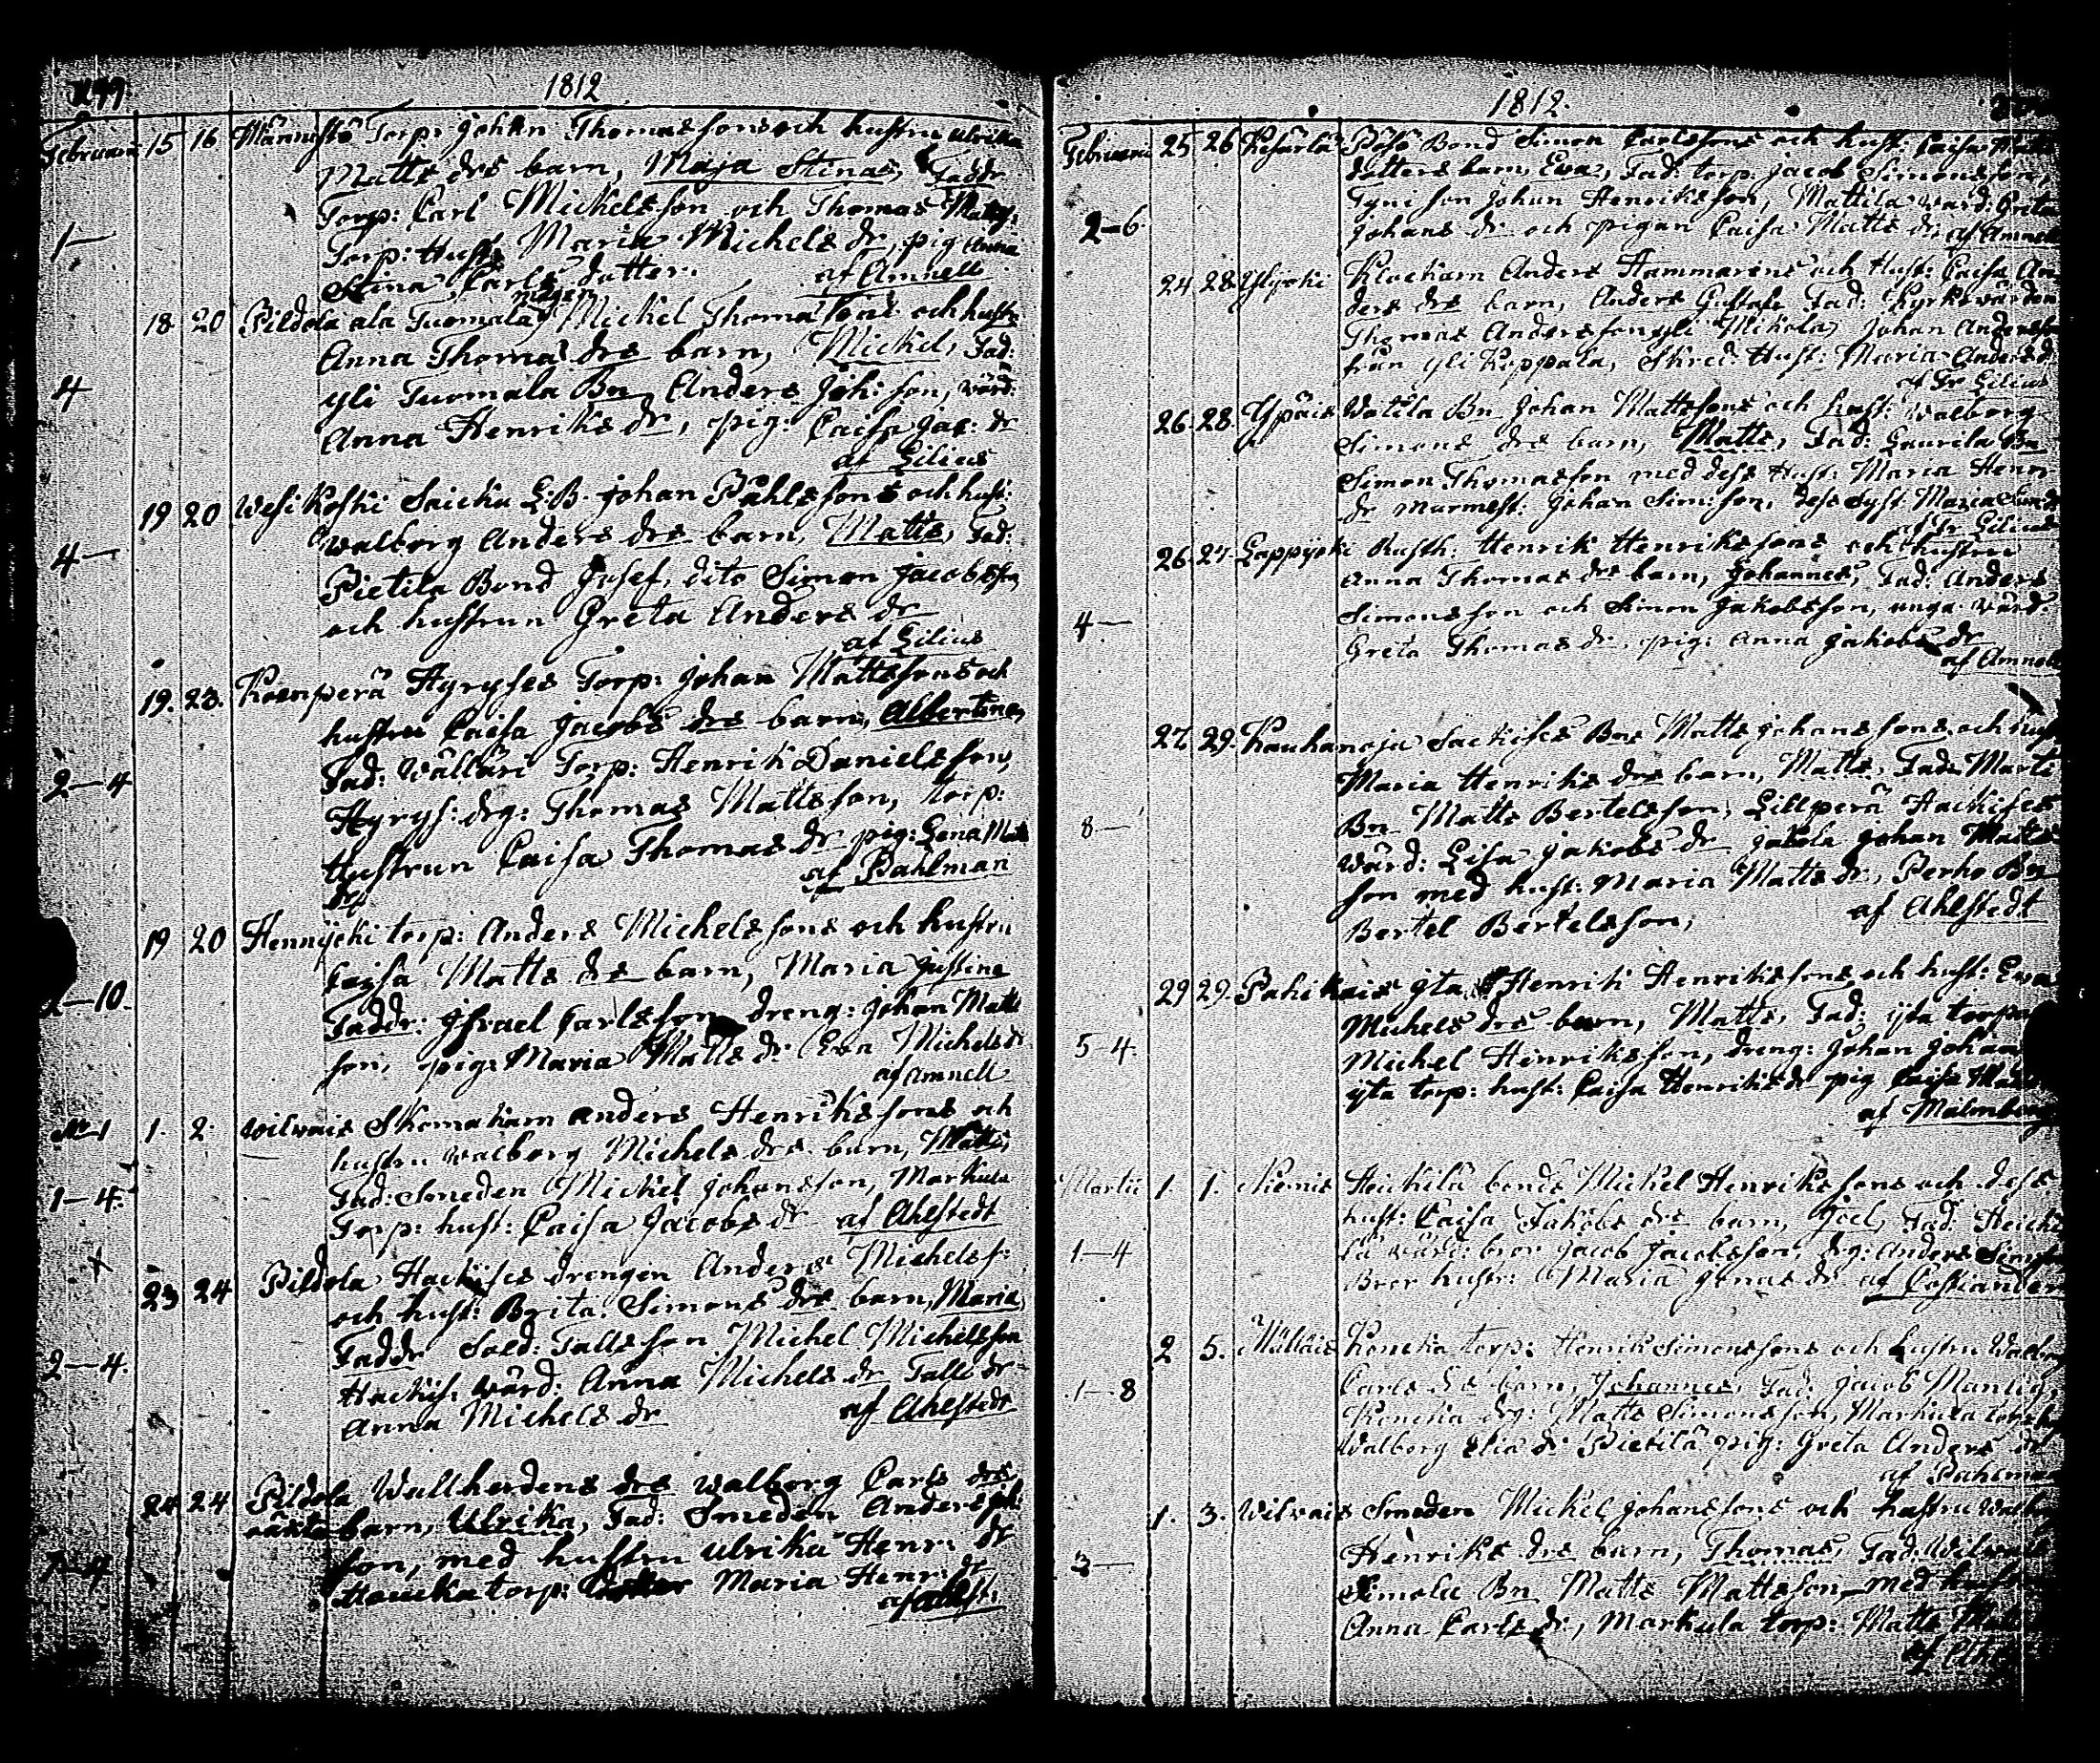 1812
Februarii 15 16 Torp: Johan Thomassons och hustru Ulrika
Matts drs barn, Maja Stinas, Faddr
Torp: Carl Michelsson och Thomas Matts:
1—
Torp: Hust: Maria Michels dr, pig Anna
Stina Carls dotter. af Amnell
mågen
18 20 Pildola ala Tuomala Michel Thomassons och hustr:
Anna Thomas drs barn, Michel, Fad:
4
yli Tuomala Bn Anders Joh: son, värd:
Anna Henriks dr, pig: Caisa Jac: dr
af Gilius
19 20 Wesikoski Saicku L:B. Johan Påhlssons och hust:
Walborg Anders drs barn, Matts, Fad:
4—
Pietila Bond Josef, dito Simon Jacobsson
och hustrun Greta Anders dr
af Gilius
19. 23. Koenperä Hyryses Torp: Johan Mattssons och
hustru Caisa Jacobs drs barn, Albertina,
Fad: Wällari Torp: Henrik Danielsson,
2—4
Hyrys: drg: Thomas Mattsson, torp:
Hustrun Caisa Thomas dr pig: Lena Matts
dr af Pahlman
19 20 Hennijoki torp: Anders Michelssons och hustru
Caisa Matts drs barn, Maria Justina
—10.
Faddr: Israel Carlsson dreng: Johan Matts
son, pig: Maria Matts dr Eva Michels dr
af Amnell
1. 2. Wilvais Skomakarn Anders Henrikssons och
hustru Walborg Michels drs barn, Matts,
Fad: Smeden Michel Johansson, Markula
1—4.
Torp: hust: Caisa Jacobs dr af Ahlstedt
23 24 Pildola Hackises drengen Anders Michelss:
och hust: Brita Simons drs barn, Maria,
Faddr Sold: Tallsson Michel Michelsson
2—4.
Hackis: värd: Anna Michels dr Talls dr
Anna Michels dr af Ahlstedt
24 24 Pildola Wallherdens drs Walborg Carls drs
oäkta barn, Ulrika, Fad: Smeden Anders Joh:
son, med hustru Ulrika Henr: dr
torp: Maria Henr: dr
af Ahlst:
1812.
Februarii 25 26 Bond Simon Carlssons och hust: Caisa
dotters barn, Eva, Fad: torp: Jacob Simonsson,
Johan Henriksson, Mattila värd: Greta
2—6.
Johans dr och pigan Caisa Matts dr af Amnell
24 28 Ylijoki Klockarn Anders Hammarens och Hust: Caisa An
ders drs barn, Anders Gustaf, Fad: Kyrkovärden
Thomas Andersson yli Mikola, Johan Andersson
från yli Koppala, Skred: Hust: Maria Anders dr
af Fr Gilius
26. 28. Ypäis Watila Bn Johan Mattssons och hust: Walborg
Simons drs barn, Matts, Fad: Laurila Bn
Simon Thomasson med dess Hust: Maria Henr
dr Murmest: Johan Sim:son, dess Syst Maria
af Fr Gilius
26. 27. Loppijoki Rusth: Henrik Henrikssons och hustru
Anna Thomas drs barn, Johannes, Fad: Anders
Simonsson och Simon Jakobsson, unga värd:
4—
Greta Thomas dr, pig: Anna Jakobs dr
af Amnell
27. 29. Kauhanoja Sackises Bns Matts Johanssons och hust
Maria Henriks drs barn, Matts, Fad: Marti
8—
Bn Matts Bertelsson, Lillperä Hackises
Wärd: Lisa Jakobs dr Jakola Johan Matts
son med hust: Maria Matts dr, Perho Bn
Bertel Bertelsson, af Ahlstedt
29 29. Pahikais yta Henrik Henrikssons och hust: Eva
Michels drs barn, Matts, Fad: yta torpa
5—4.
Michel Henriksson, dreng: Johan Johan
yta torp: hust: Caisa Henriks dr pig Caisa
af Malmberg
Martii 1. 1. Niemis Heickilä bonds Michel Henrikssons och dess
hust: Caisa Jakobs drs barn, Joel, Fad: Heicki
1—4
lä värd: bror Jacob Jacobsson, drg: Anders
Bror hustr: Maria Jonas dr af Costiander
2 5. Torp: Henrik Simonssons och hustru Walborg
Carls drs barn, Johannes, Fad: Jacob
1—8
drg: Matts Simonsson, Markula
Walborg Elia dr Pietilä pig: Greta Anders dr
af Pahlman
1. 3. Wilvais Smeden Michel Johanssons och hustru Walborg
Henriks drs barn, Thomas, Fad: Wilvais
3—
Simola Bn Matts Mattsson, med hustru
Anna Carls dr, Markula torp: Matts
af Ahl